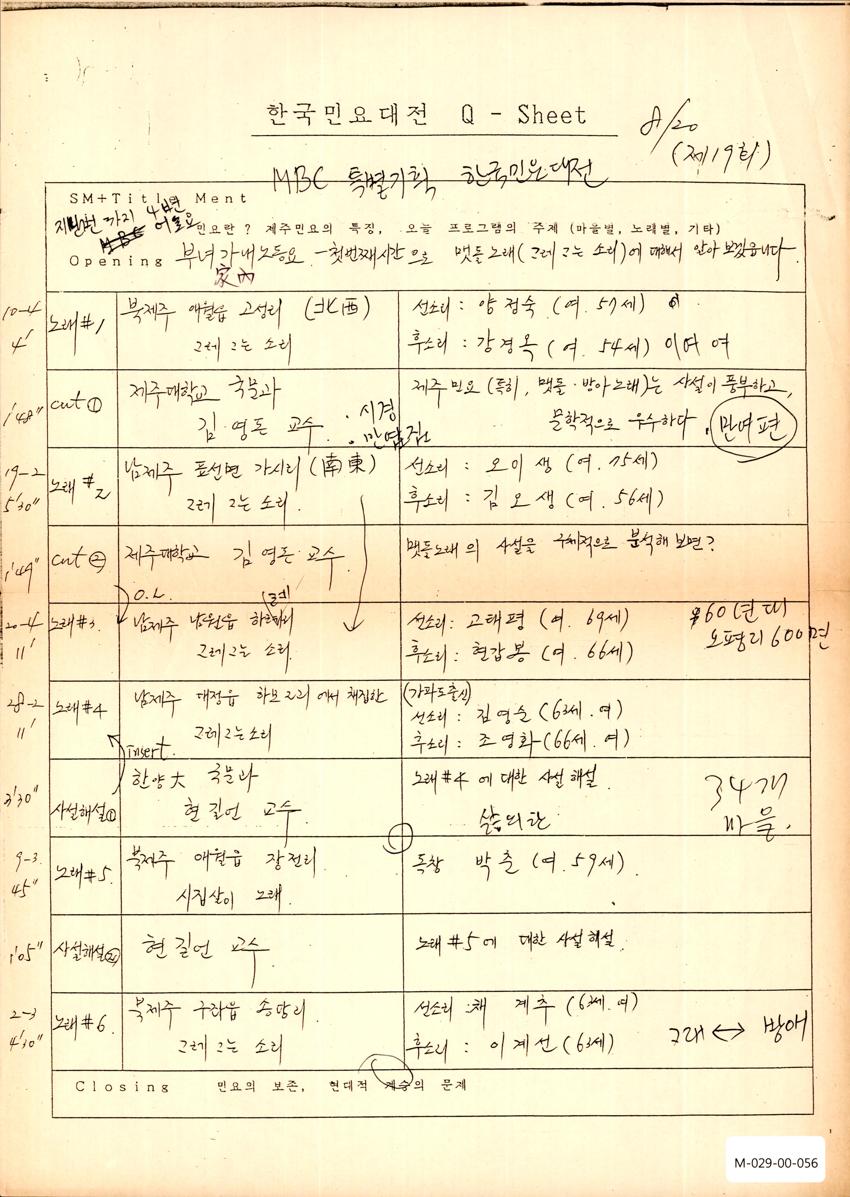 한국민요대전 Q - Sheet
8/20
(제19회)
MBC 特별기획 한국민요대전
SM+Title Ment
지난번 까지 4번 어로요
민요란? 제주민요의 특징, 오늘 프로그램의 주제 (마을별, 노래별, 기타)
Opening 부녀 가내노동요 - 첫번째시간으로 맷돌노래(그레 그는 소리)에 대해서 알아 보겠습니다.
家內
10-4
4′
노래#1
북제주 애월읍 고성리 (北西)
그레 그는 소리
선소리 : 양정숙 (여. 57세)
후소리 : 강경옥 (여. 54세) 이여 여
1′48″
cut ①
제주대학교 국문과
김영돈 교수
· 시경
· 만엽집
제주민요 (특히, 맷돌·방아노래)는 사설이 풍부하고,
문학적으로 우수하다. 만여편
19-2
5′30″
노래#2
남제주 표선면 가시리 (南東)
그레 그는 소리.
선소리 : 오이생 (여. 75세)
후소리 : 김오생 (여. 56세)
1′49″
cut ②
제주대학교 김영돈 교수.
맷돌노래의 사설을 구체적으로 분석해 보면?
O.L.
20-4
11′
노래#3.
남제주 남원읍 하례리
그레 그는 소리.
선소리 : 고태평 (여. 69세)
후소리 : 현갑봉 (여. 66세)
60년대
노평리 600편
28-2
11′
노래#4
남제주 대정읍 하모2리에서 채집한
그레 그는 소리
(가파도출신)
선소리 : 김영순 (63세. 여)
후소리 : 조영화 (66세. 여)
insert.
3′30″
사설해설①
한양大 국문과
현길언 교수.
노래#4 에 대한 사설 해설.
삶의 한
34개
마을.
9-3
45″
노래#5.
북제주 애월읍 장전리
시집살이 노래.
독창 박춘 (여. 59세).
1′05″
사설해설②
현길언 교수.
노래#5 에 대한 사설 해설.
2-3
4′30″
노래#6.
북제주 구좌읍 송당리.
그레 그는 소리
선소리 : 채계추 (63세. 여)
후소리 : 이계선 (63세)
그래 ↔ 방애
Closing 민요의 보존, 현대적 계승의 문제
M-029-00-056